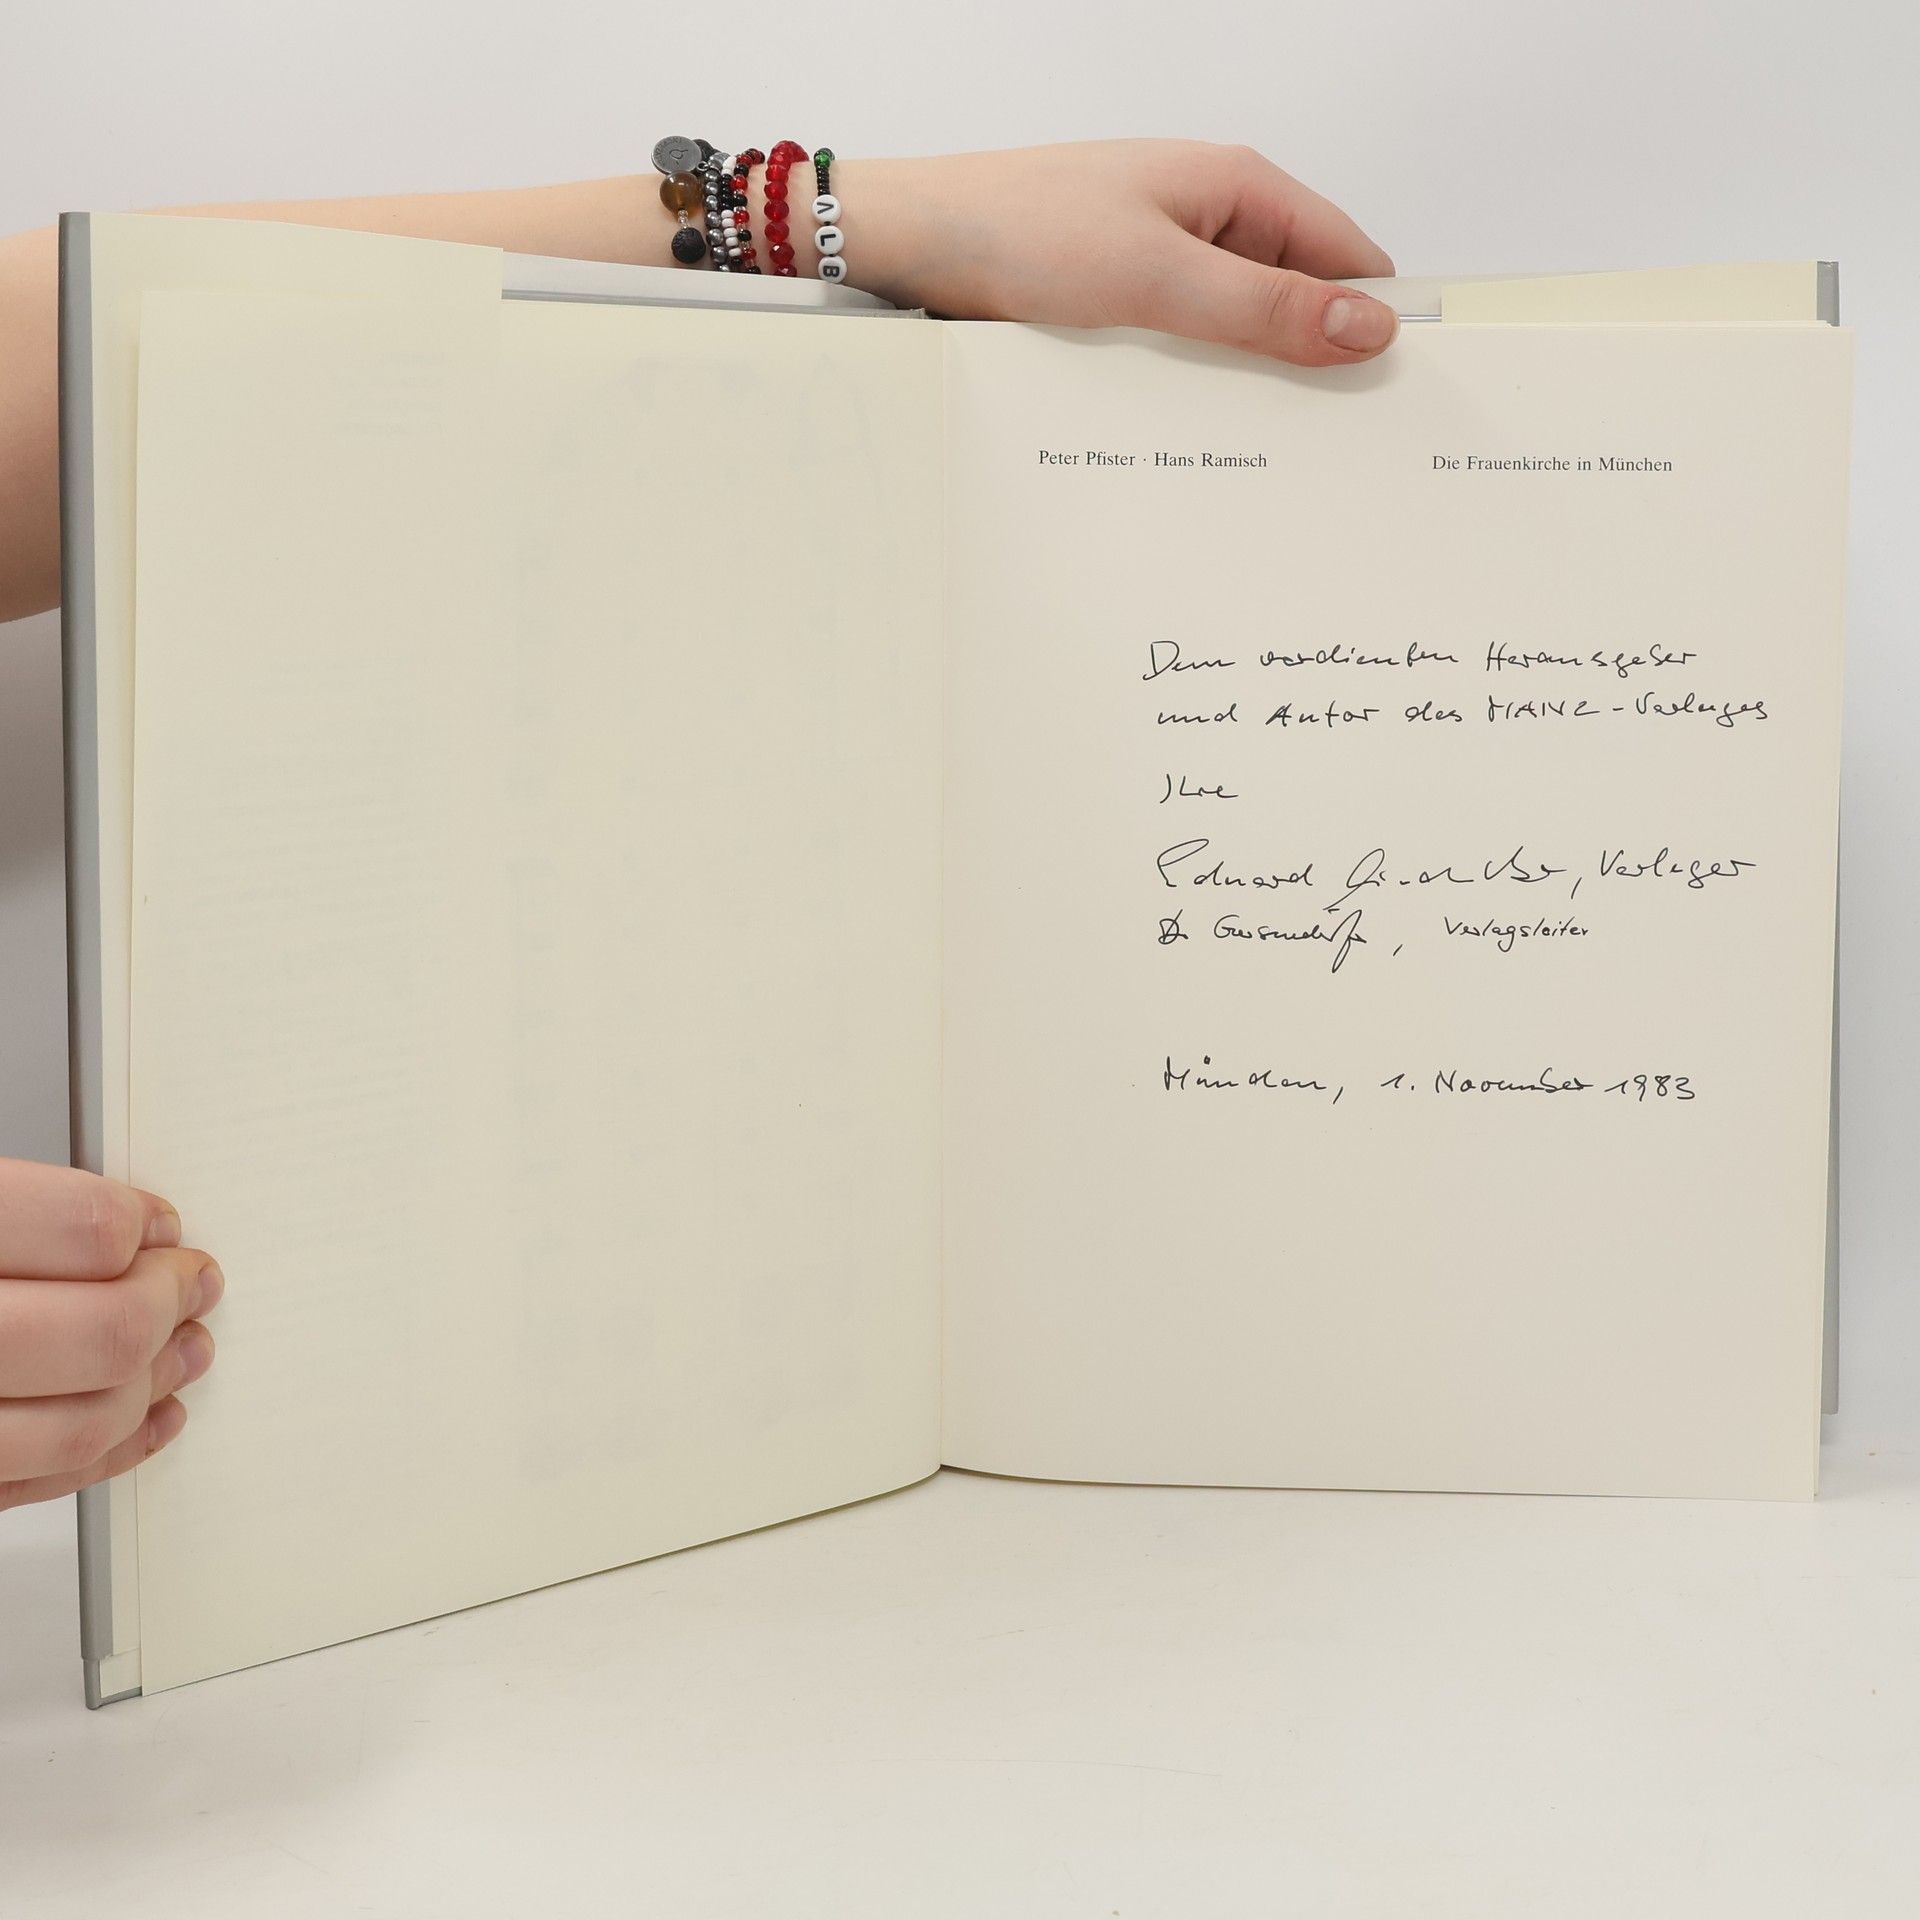 ALB
Peter Pfister · Hans Ramisch
Die Frauenkirche in München
Dem verdienten Herausgeber
und Autor des MANZ-Verlages
Ihre
Eduard , Verleger
Dr , Verlagsleiter
München, 1. November 1983